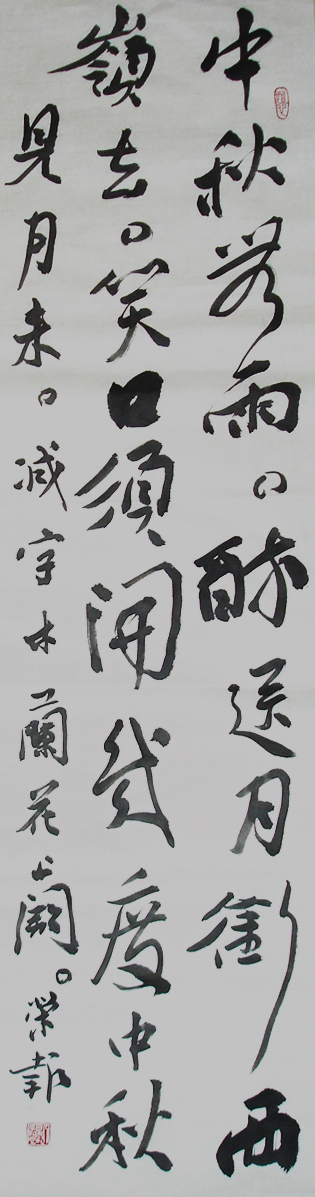 中秋無雨。醉送月銜西
嶺去。笑口須開幾度中秋
見月来。减字木蘭花上闋。榮報